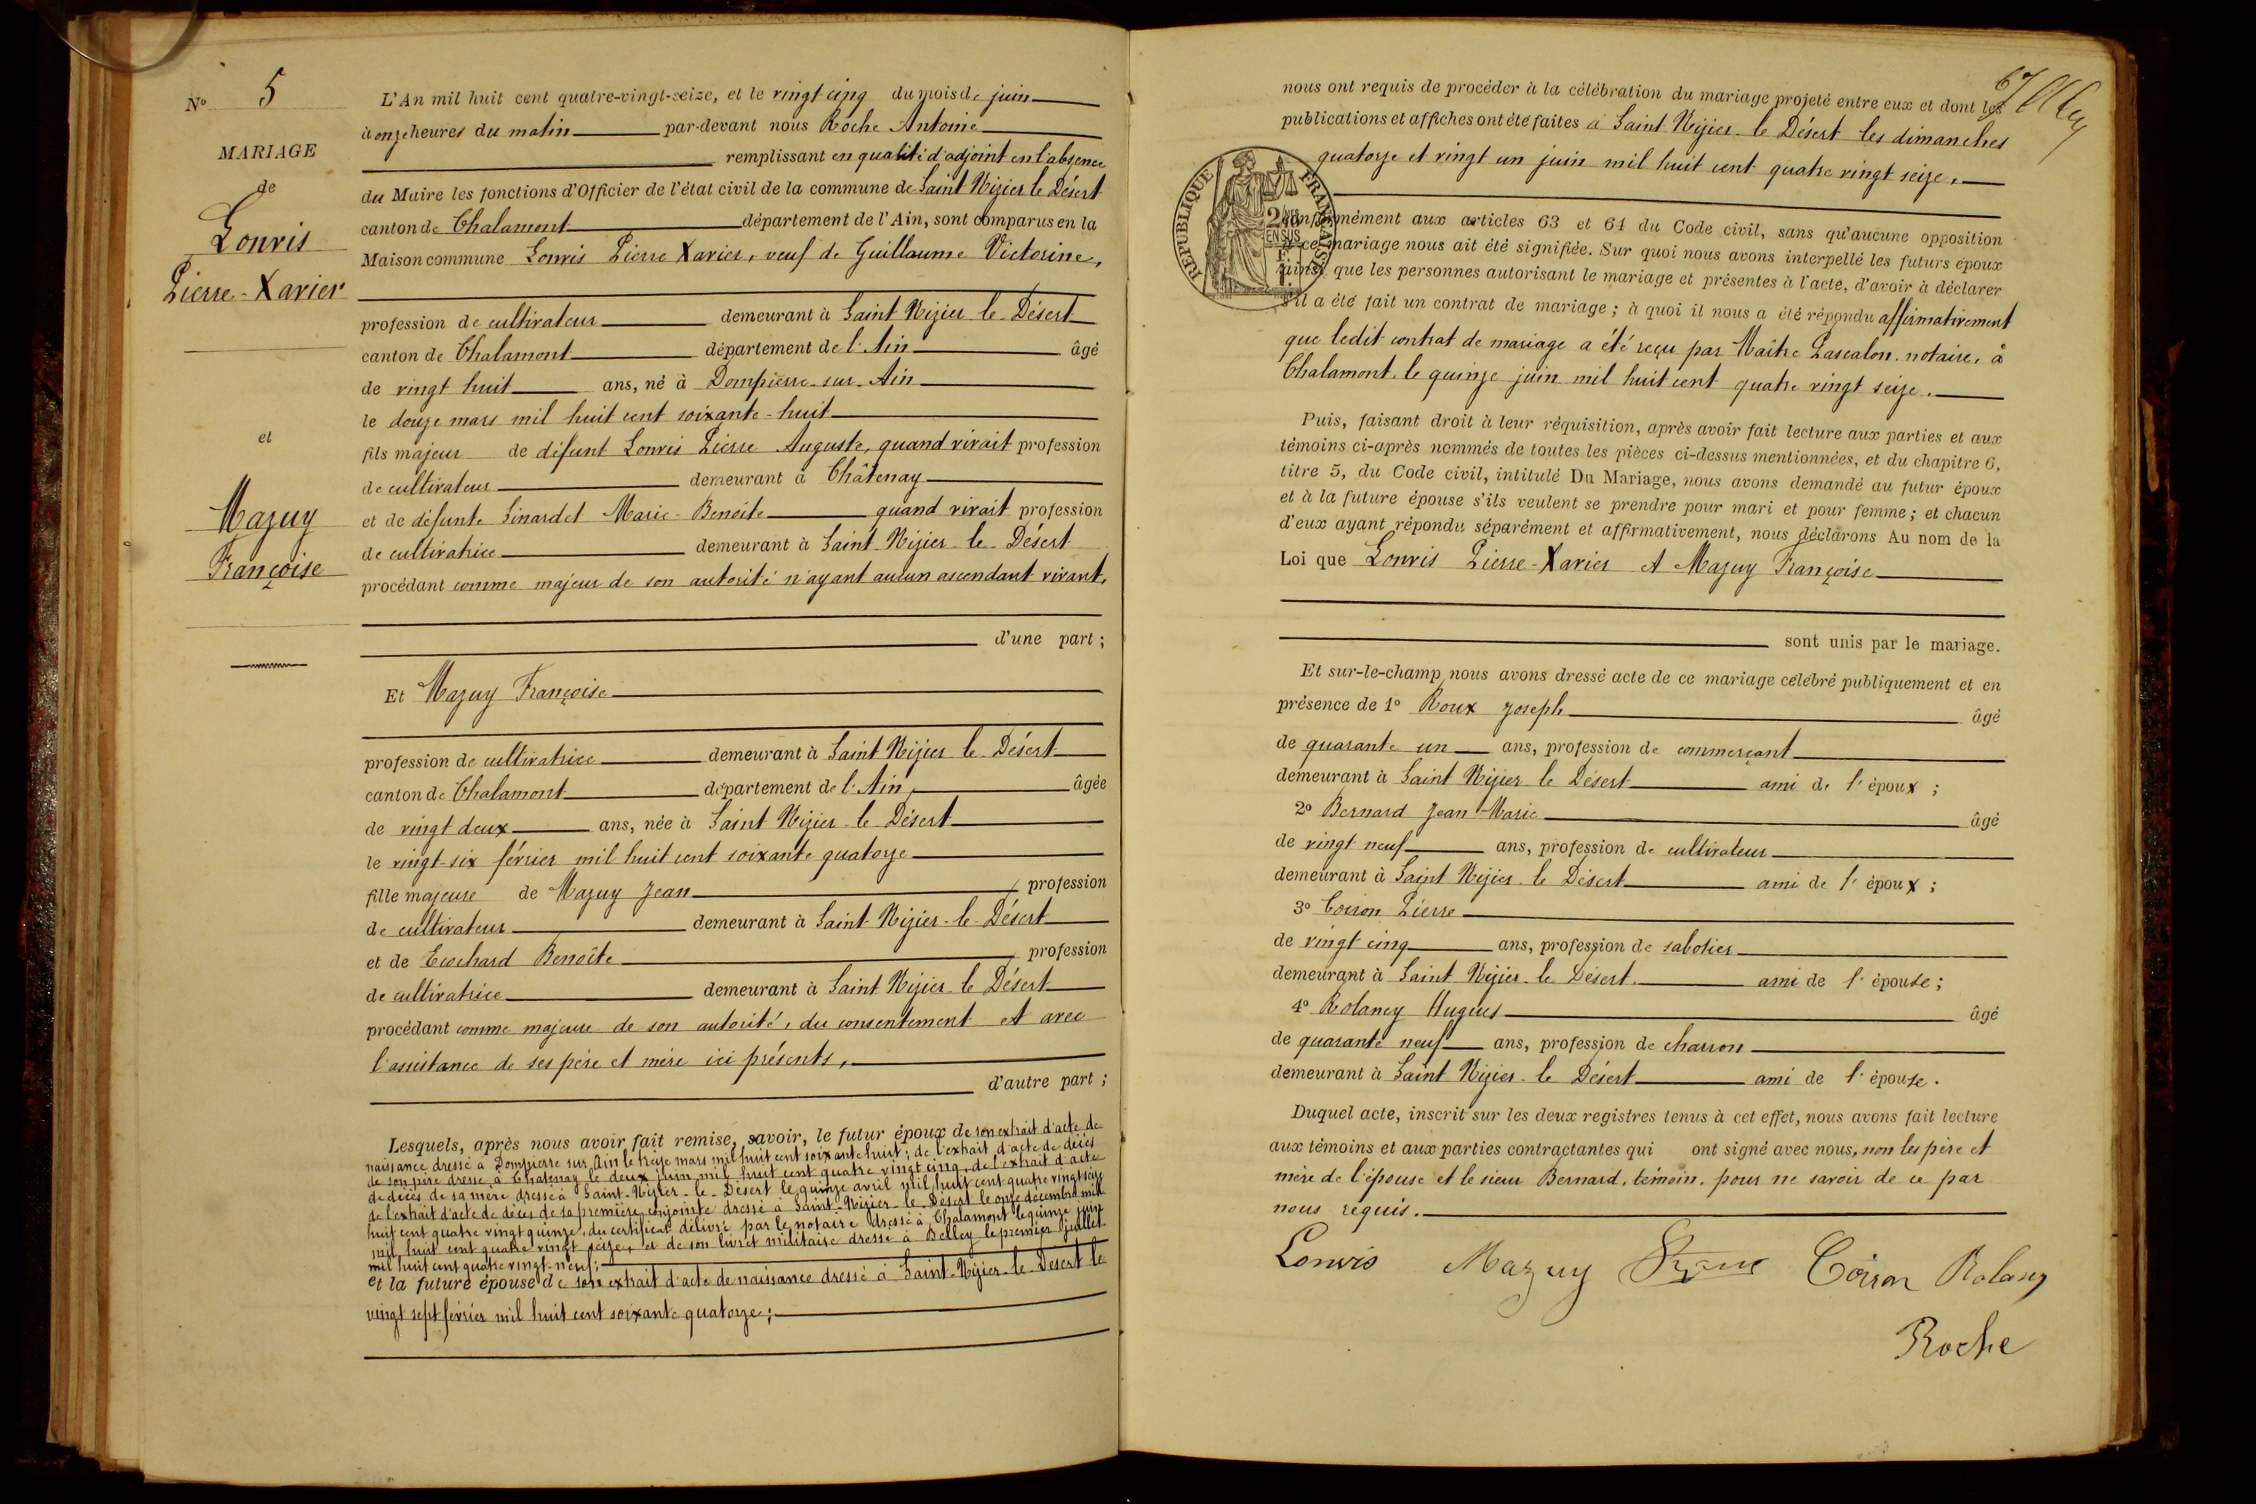 N° 5
MARIAGE
de
Lonvis
Pierre-Xavier
et
Mazuy
Françoise
L'An mil huit cent quatre-vingt-seize, et le vingt-cinq du mois de juin
à onze heures du matin par-devant nous Roche Antoine
remplissant en qualité d'adjoint en l'absence
du Maire les fonctions d'Officier de l'état civil de la commune de Saint Nizier le Désert
canton de Chalamont département de l'Ain, sont comparus en la
Maison commune Lonvis Pierre Xavier, veuf de Guillaume Victorine,
profession de cultivateur demeurant à Saint Nizier le Désert
canton de Chalamont département de l'Ain âgé
de vingt huit ans, né à Dompierre-sur-Ain
le douze mars mil huit cent soixante-huit
fils majeur de défunt Lonvis Pierre Auguste, quand vivait profession
de cultivateur demeurant à Châtenay
et de défunte Sinardet Marie-Benoite quand vivait profession
de cultivatrice demeurant à Saint-Nizier-le-Désert
procédant comme majeur de son autorité n'ayant aucun ascendant vivant,
d'une part ;
Et Mazuy Françoise
profession de cultivatrice demeurant à Saint Nizier le Désert
canton de Chalamont département de l'Ain, âgée
de vingt deux ans, née à Saint Nizier le Désert
le vingt six février mil huit cent soixante quatorze
fille majeure de Mazuy Jean profession
de cultivateur demeurant à Saint-Nizier-le-Désert
et de Ecochard Benoîte profession
de cultivatrice demeurant à Saint Nizier le Désert
procédant comme majeure de son autorité, du consentement et avec
l'assistance de ses père et mère ici présents,
d'autre part ;
Lesquels, après nous avoir fait remise, savoir, le futur époux de son extrait d'acte de
naissance dressé à Dompierre sur Ain le treize mars mil huit cent soixante huit ; de l'extrait d'acte de décès
de son père dressé à Chatenay le deux juin mil huit cent quatre vingt cinq, de l'extrait d'acte
de décès de sa mère dressé à Saint-Nizier-le-Désert le quinze avril mil huit cent quatre vingt seize
de l'extrait d'acte de décès de sa première conjointe dressé à Saint-Nizier-le-Désert le onze décembre mil
huit cent quatre vingt quinze, du certificat délivré par le notaire dressé à Chalamont le quinze juin
mil huit cent quatre vingt seize, et de son livret militaire dressé à Belley le premier juillet
mil huit cent quatre vingt-neuf ;
et la future épouse de son extrait d'acte de naissance dressé à Saint-Nizier-le-Désert le
vingt sept février mil huit cent soixante quatorze ;
67
nous ont requis de procéder à la célébration du mariage projeté entre eux et dont les
publications et affiches ont été faites à Saint-Nizier-le Désert les dimanches
quatorze et vingt un juin mil huit cent quatre vingt seize,
RÉPUBLIQUE FRANÇAISE
conformément aux articles 63 et 64 du Code civil, sans qu'aucune opposition
à ce mariage nous ait été signifiée. Sur quoi nous avons interpellé les futurs époux
ainsi que les personnes autorisant le mariage et présentes à l'acte, d'avoir à déclarer
s'il a été fait un contrat de mariage ; à quoi il nous a été répondu affirmativement
que ledit contrat de mariage a été reçu par Maître Pascalon, notaire, à
Chalamont, le quinze juin mil huit cent quatre vingt seize.
Puis, faisant droit à leur réquisition, après avoir fait lecture aux parties et aux
témoins ci-après nommés de toutes les pièces ci-dessus mentionnées, et du chapitre 6,
titre 5, du Code civil, intitulé Du Mariage, nous avons demandé au futur époux
et à la future épouse s'ils veulent se prendre pour mari et pour femme ; et chacun
d'eux ayant répondu séparément et affirmativement, nous déclarons Au nom de la
Loi que Lonvis Pierre-Xavier et Mazuy Françoise
sont unis par le mariage.
Et sur-le-champ nous avons dressé acte de ce mariage célébré publiquement et en
présence de 1° Roux Joseph âgé
de quarante un ans, profession de commerçant
demeurant à Saint Nizier le Désert ami de l'époux ;
2° Bernard Jean Marie âgé
de vingt neuf ans, profession de cultivateur
demeurant à Saint Nizier le Désert ami de l'époux ;
3° Coiron Pierre
de vingt cinq ans, profession de sabotier
demeurant à Saint Nizier-le Désert ami de l'épouse ;
4° Rolancy Hugues âgé
de quarante neuf ans, profession de charron
demeurant à Saint Nizier-le Désert ami de l'épouse.
Duquel acte, inscrit sur les deux registres tenus à cet effet, nous avons fait lecture
aux témoins et aux parties contractantes qui ont signé avec nous, non les père et
mère de l'épouse et le sieur Bernard, témoin, pour ne savoir de ce par
nous requis.
Lonvis Mazuy Coiron Rolancy
Roche